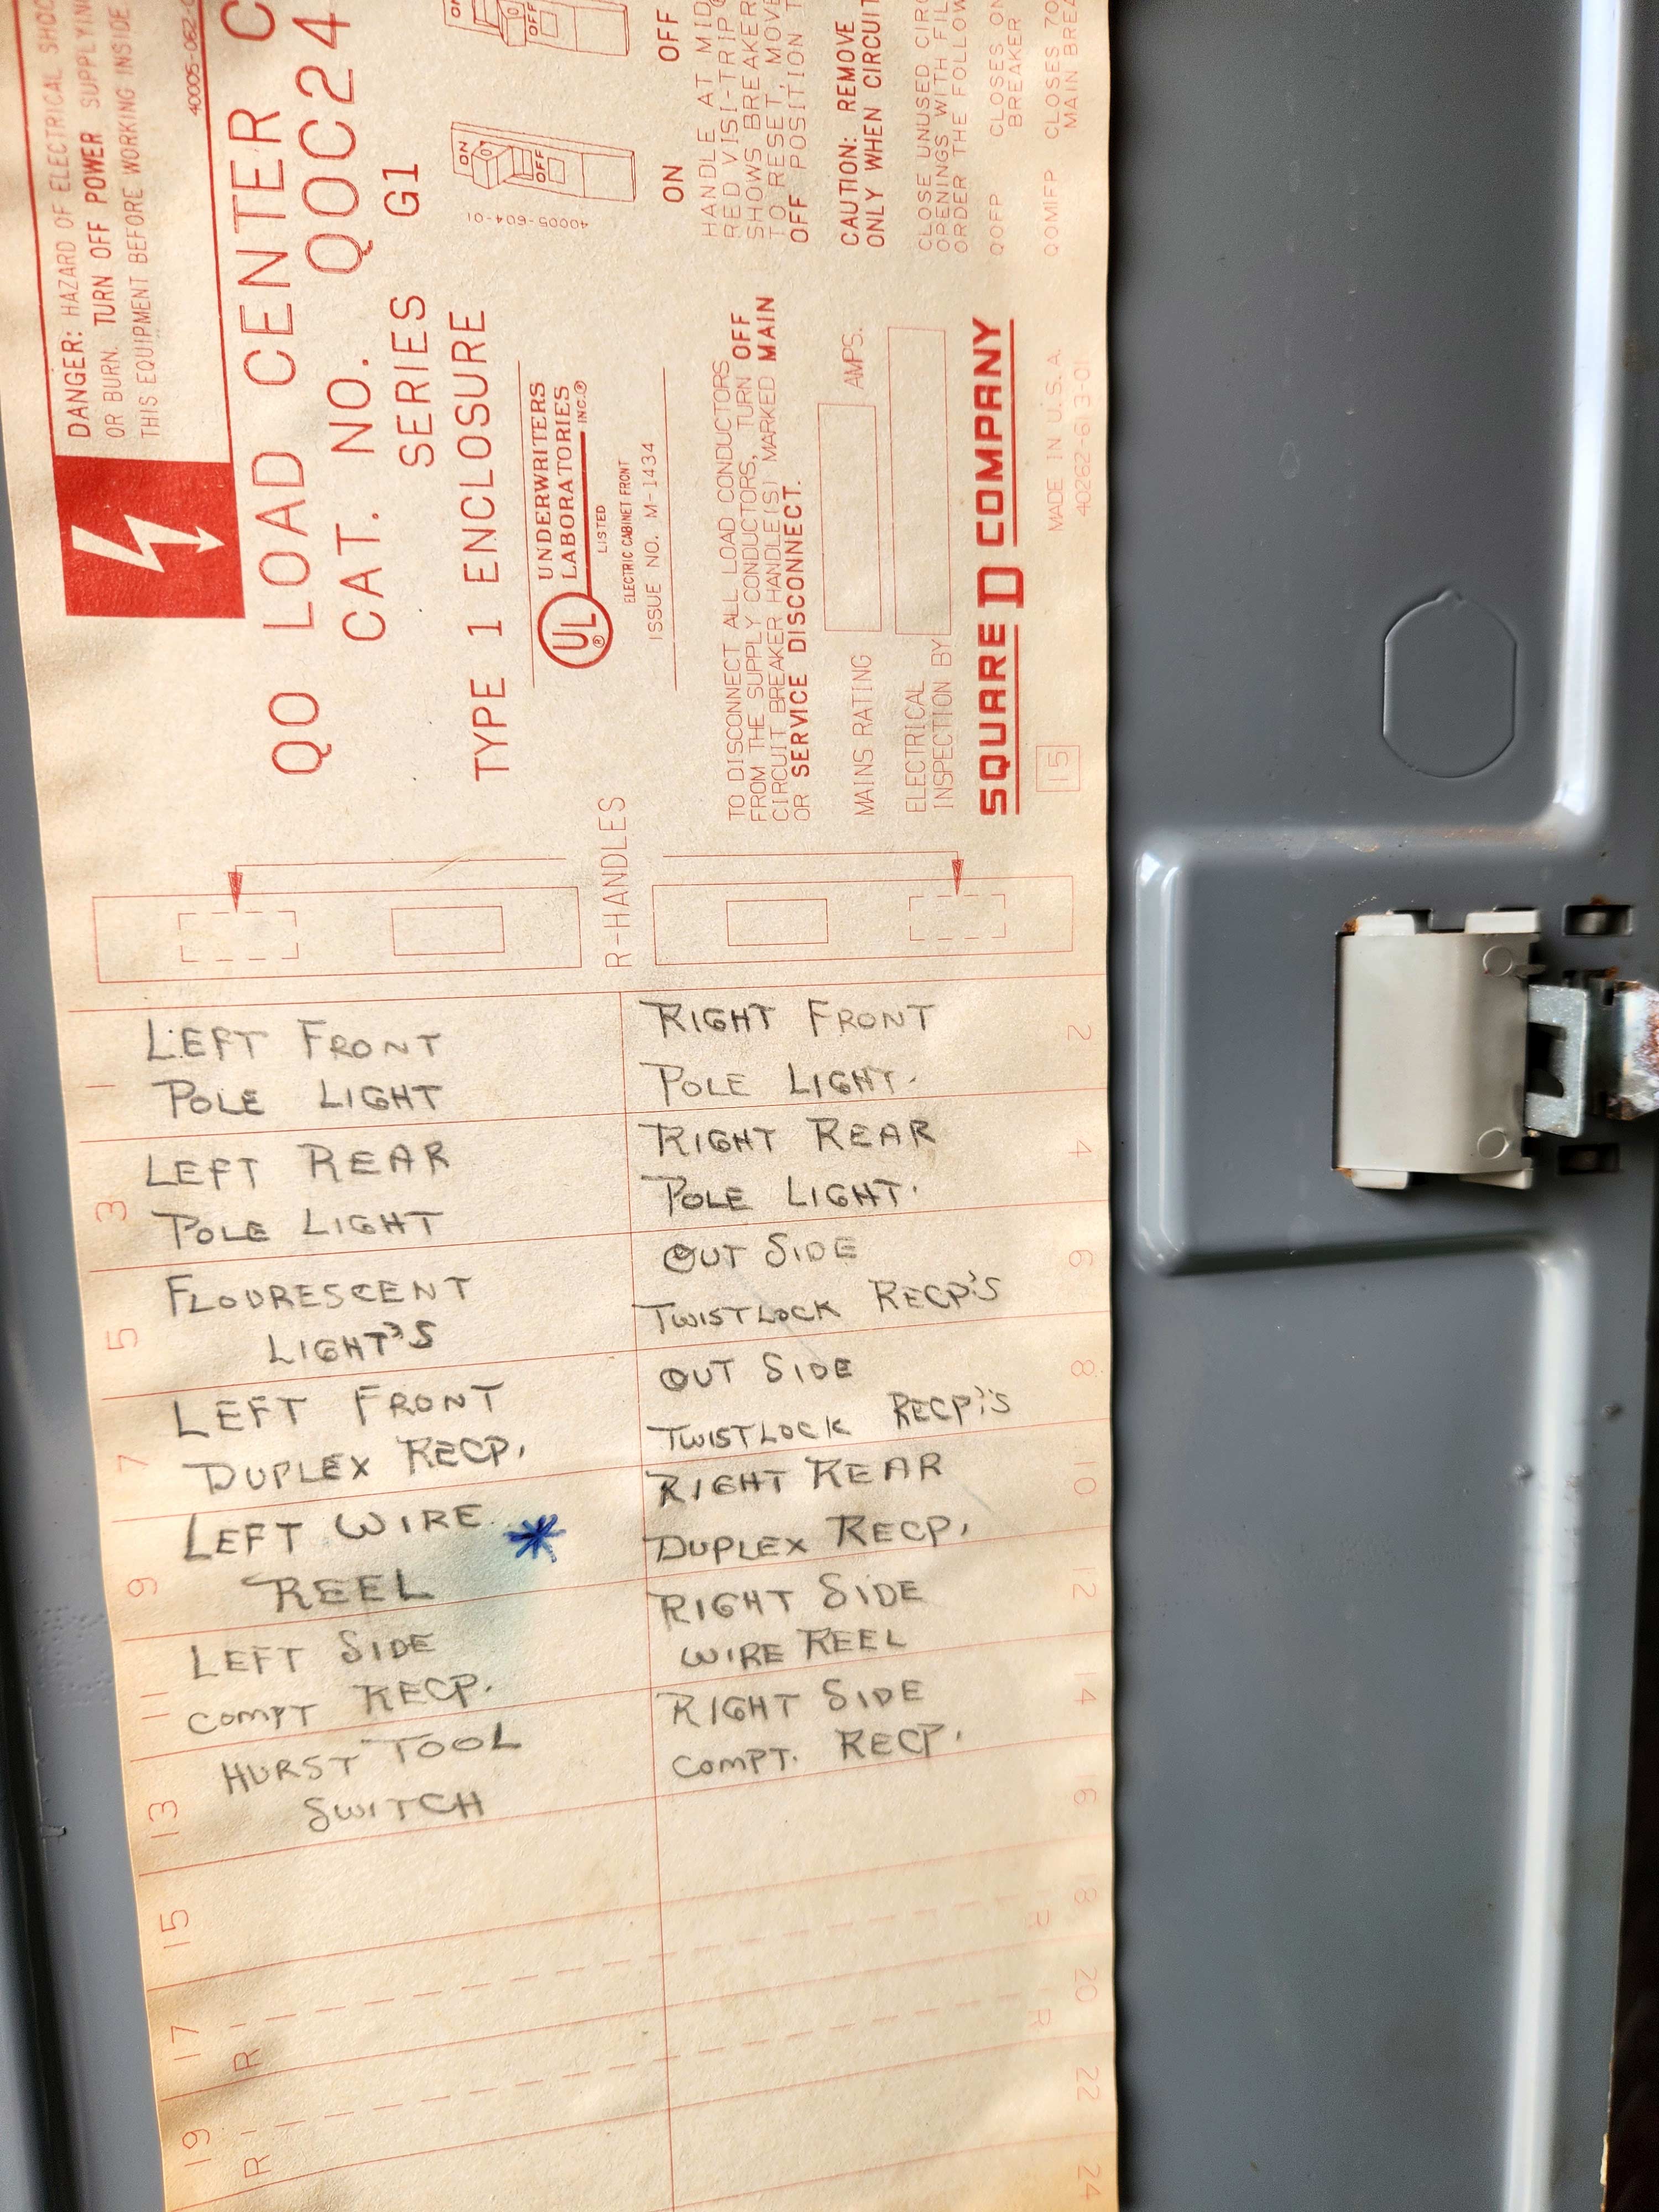 DANGER: HAZARD OF ELECTRICAL SHOC
OR BURN. TURN OFF POWER SUPPLYING
THIS EQUIPMENT BEFORE WORKING INSIDE
40005-062-0
QO LOAD CENTER C
CAT. NO. QOC24
SERIES G1
TYPE 1 ENCLOSURE
UL
®
UNDERWRITERS
LABORATORIES
INC.®
LISTED
ELECTRIC CABINET FRONT
ISSUE NO. M-1434
ON
OFF
ON
OFF
40005-604-01
ON OFF
HANDLE AT MID
RED VISI-TRIP
SHOWS BREAKER
TO RESET, MOVE
OFF POSITION T
CAUTION: REMOVE
ONLY WHEN CIRCUIT
CLOSE UNUSED CIRC
OPENINGS WITH FIL
ORDER THE FOLLOW
QOFP CLOSES ON
BREAKER
QOMIFP CLOSES 70
MAIN BREA
TO DISCONNECT ALL LOAD CONDUCTORS
FROM THE SUPPLY CONDUCTORS, TURN OFF
CIRCUIT BREAKER HANDLE(S) MARKED MAIN
OR SERVICE DISCONNECT.
MAINS RATING AMPS.
ELECTRICAL
INSPECTION BY
SQUARE D COMPANY
15
MADE IN U.S.A.
40262-613-01
R-HANDLES
1
LEFT FRONT
POLE LIGHT
RIGHT FRONT
POLE LIGHT.
2
3
LEFT REAR
POLE LIGHT
RIGHT REAR
POLE LIGHT.
4
5
FLOURESCENT
LIGHT'S
OUT SIDE
TWISTLOCK RECP'S
6
7
LEFT FRONT
DUPLEX RECP.
OUT SIDE
TWISTLOCK RECP'S
8
9
LEFT WIRE
REEL
RIGHT REAR
DUPLEX RECP.
10
11
LEFT SIDE
COMPT RECP.
RIGHT SIDE
WIRE REEL
12
13
HURST TOOL
SWITCH
RIGHT SIDE
COMPT. RECP.
14
15
16
17
R
8
R
19
R
20
R
22
24